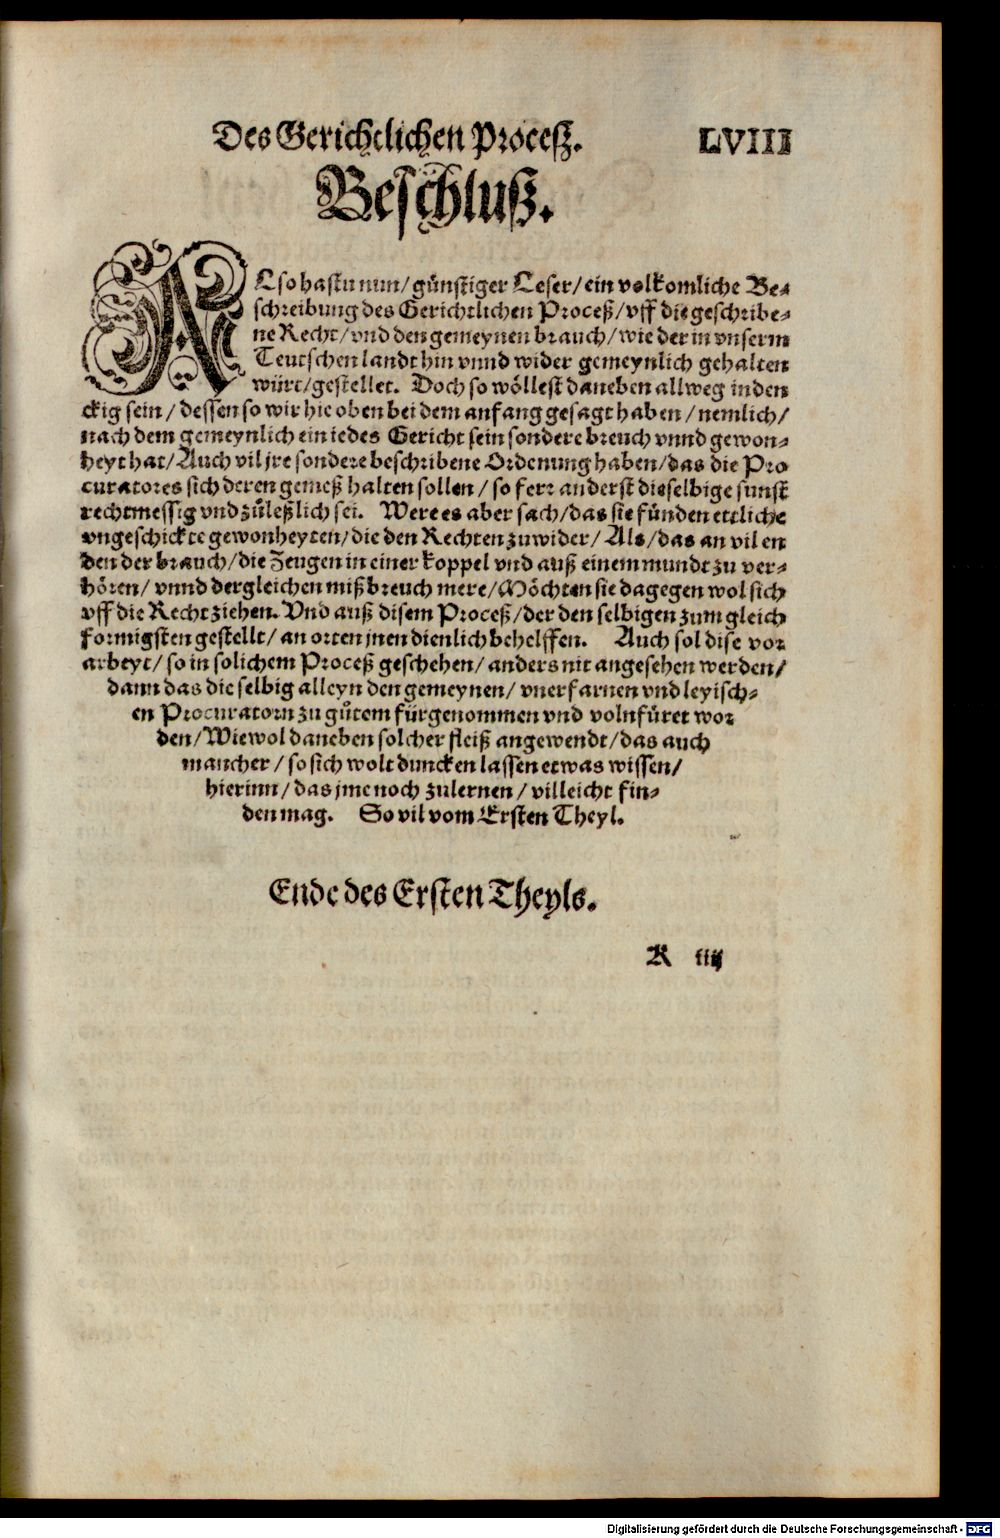 Des Gerichtlichen Proceß. LVIII
Beschluß.
ALso hastu nun/ günstiger Leser/ ein volkomliche Be-
schreibung des Gerichtlichen Proceß/ vff die geschribe-
ne Recht/ vnd den gemeynen brauch/ wie der in vnserm
Teutschen landt hin vnnd wider gemeynlich gehalten
würt/ gestellet. Doch so wöllest daneben allweg inden
ckig sein/ dessen so wir hie oben bei dem anfang gesagt haben/ nemlich/
nach dem gemeynlich ein iedes Gericht sein sondere breuch vnnd gewon-
heyt hat/ Auch vil jre sondere beschribene Ordenung haben/ das die Pro
curatores sich deren gemeß halten sollen/ so ferr anderst dieselbige sunst
rechtmessig vnd zůleßlich sei. Were es aber sach/ das sie fünden ettliche
vngeschickte gewonheyten/ die den Rechten zuwider/ Als/ das an vil en
den der brauch/ die Zeugen in einer koppel vnd auß einem mundt zu ver-
hören/ vnnd dergleichen mißbreuch mere/ Möchten sie dagegen wol sich
vff die Recht ziehen. Vnd auß disem Proceß/ der den selbigen zum gleich
formigsten gestellt/ an orten jnen dienlich behelffen. Auch sol dise vor
arbeyt/ so in solichem Proceß geschehen/ anders nit angesehen werden/
dann das die selbig alleyn den gemeynen/ vnerfarnen vnd leyisch-
en Procuratorn zu gůtem fürgenommen vnd volnfüret wor
den/ Wiewol daneben solcher fleiß angewendt/ das auch
mancher/ so sich wolt duncken lassen etwas wissen/
hierinn/ das jme noch zulernen/ villeicht fin-
den mag. So vil vom Ersten Theyl.
Ende des Ersten Theyls.
K iiij
Digitalisierung gefördert durch die Deutsche Forschungsgemeinschaft - DFG